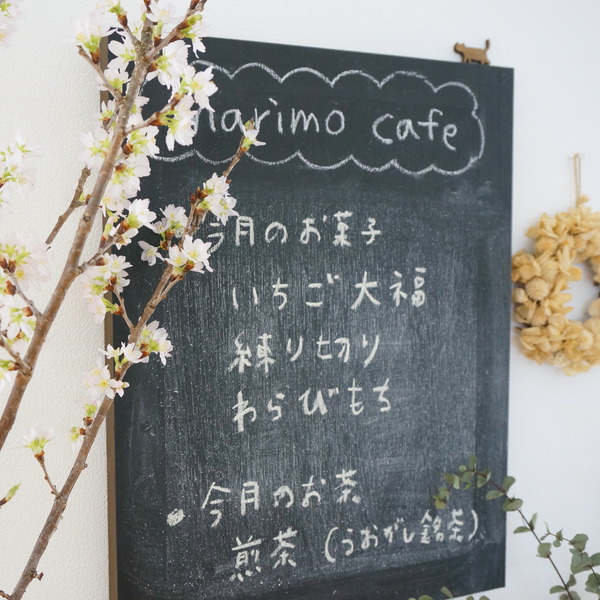 marimo cafe
今月のお菓子
いちご大福
練り切り
わらびもち
今月のお茶
煎茶 (うおがし銘茶)